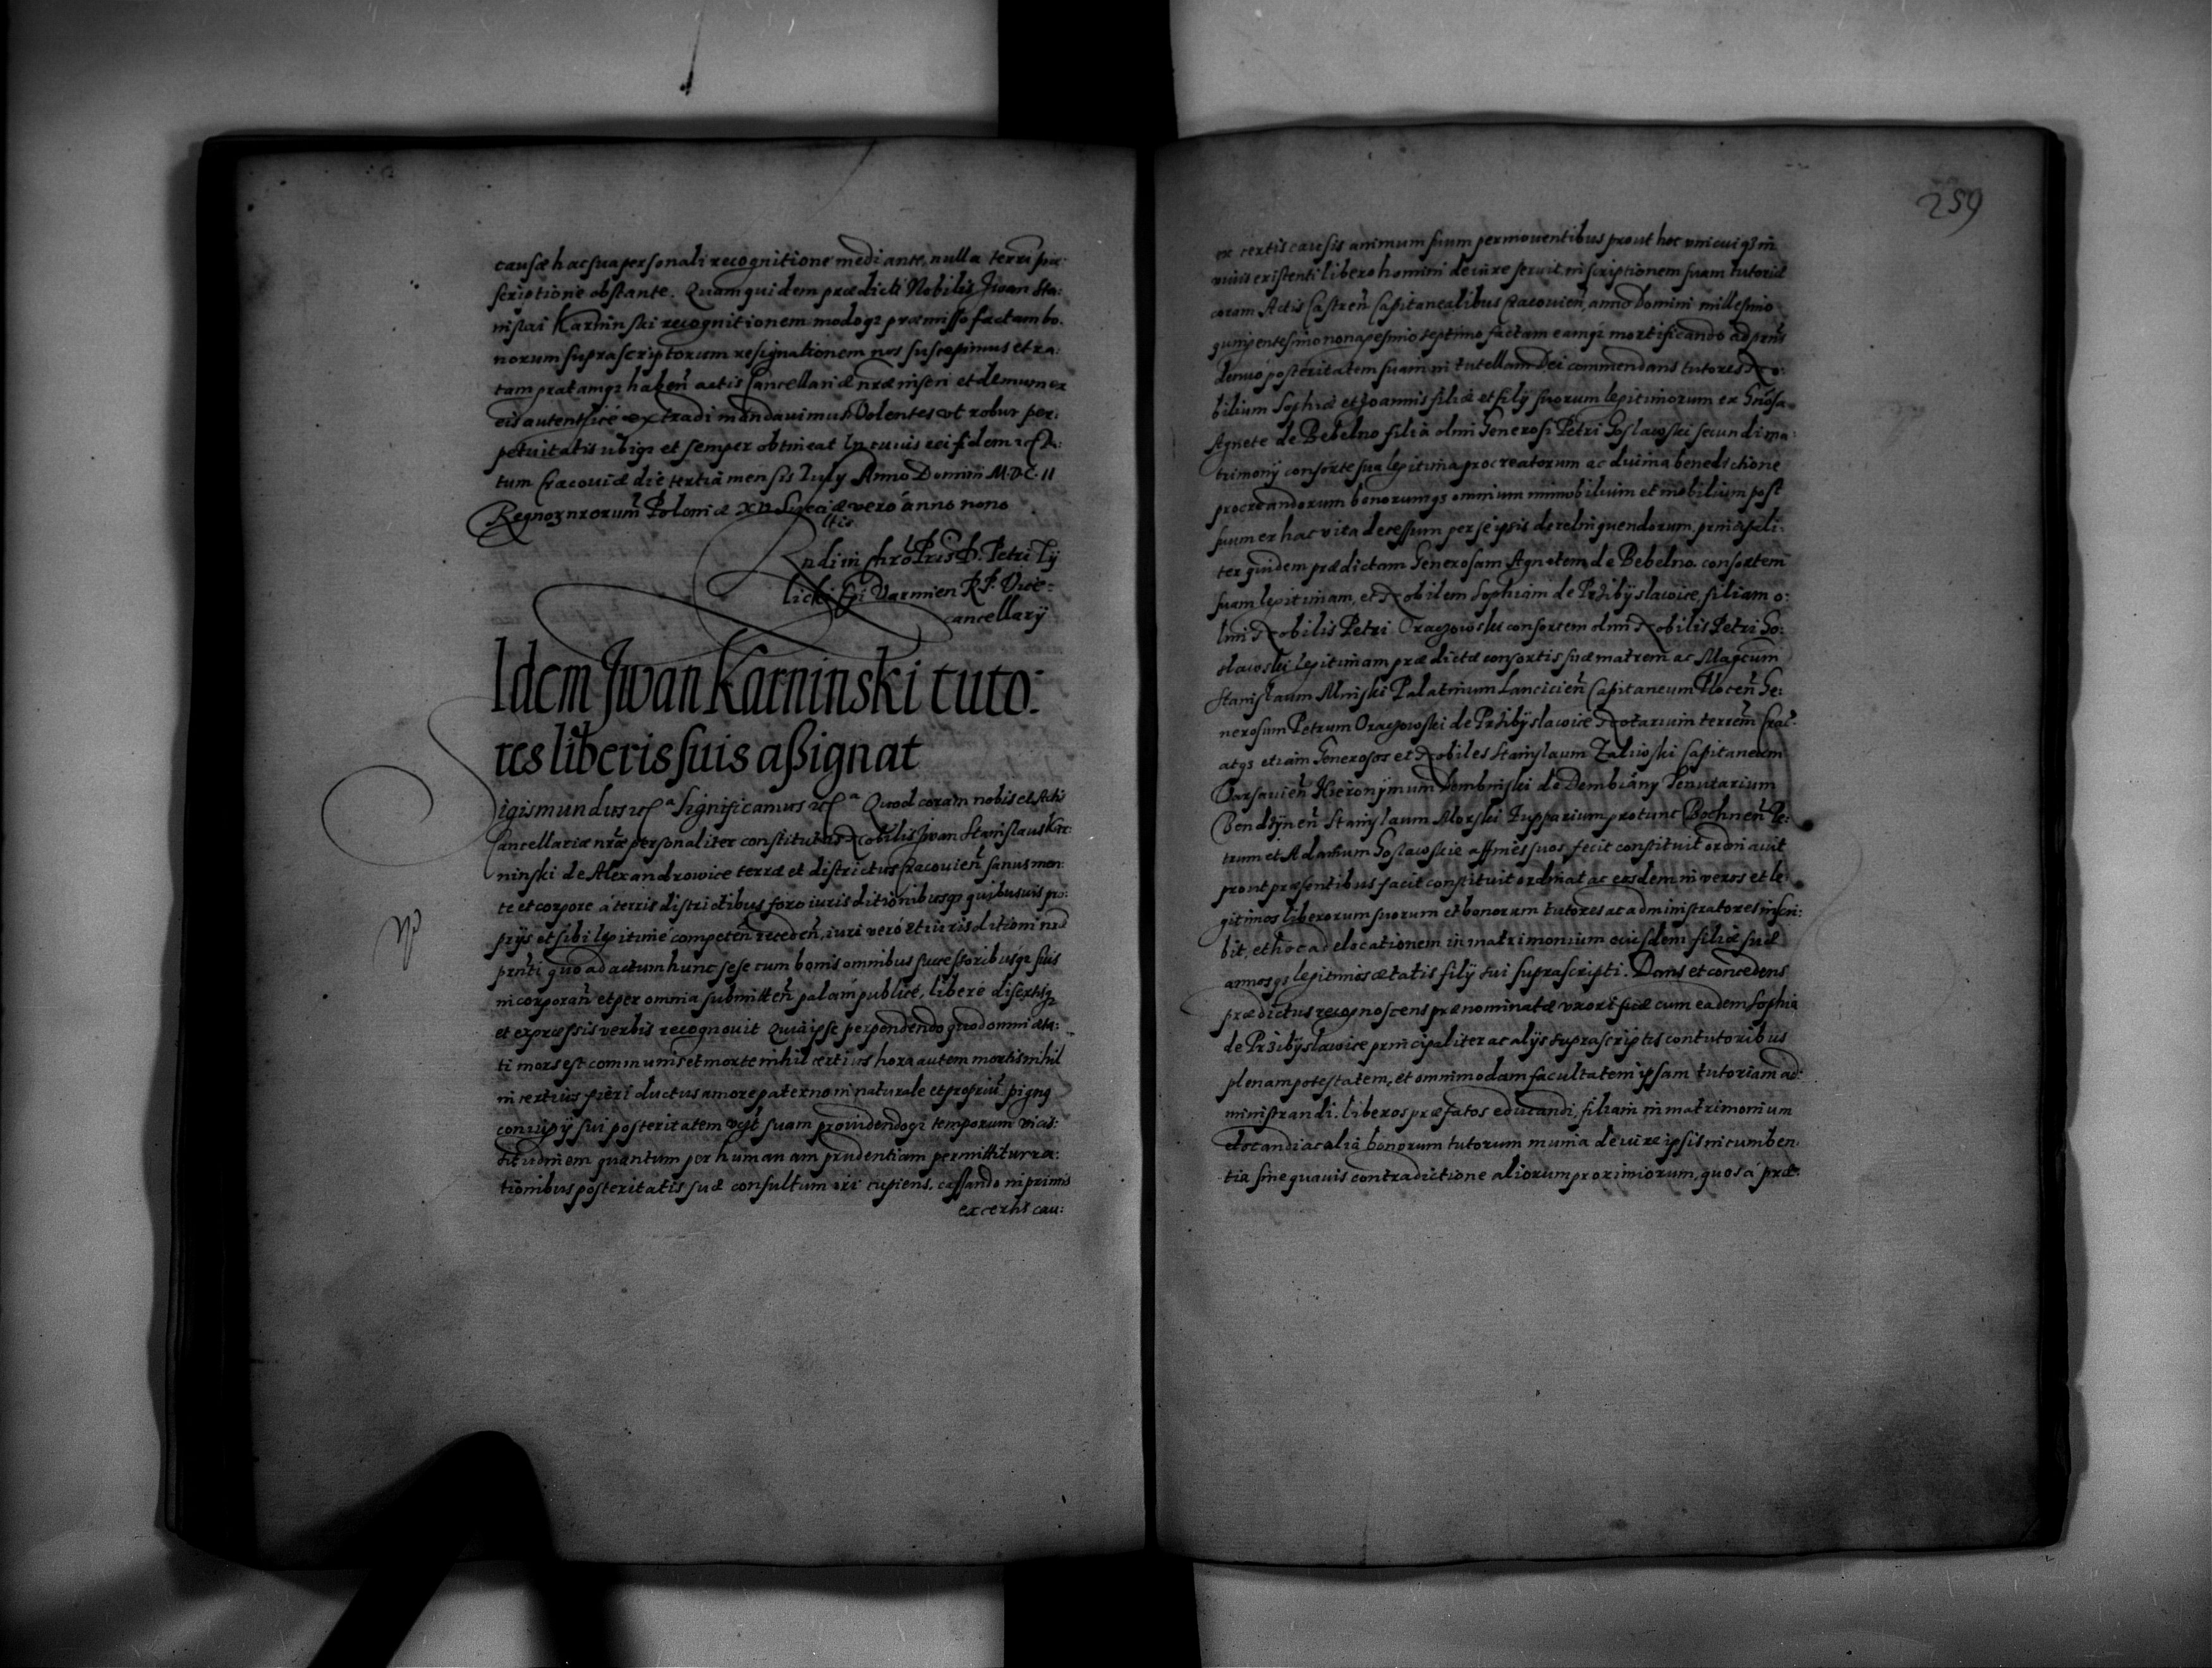 causæ hac sua personali recognitione mediante, nulla terrs. præ:
scriptione obstante. Quam quidem prædicti Nobilis Jwan Sta:
nislai Karnin ski recognitionem modoqȝ præmisso factam bo:
norum suprascriptorum resignationem nos suscepimus et ra:
tam gratamqȝ haben̄ actis Cancellariæ nr̄æ inseri et demum ex
eis autenticè extradi mandauimus Volentes vt robur per:
petuitatis ubiqȝ et semper obtineat In cuius rei fidem etc Da:
tum Cracouiæ die tertia mensis July Anno Domini M.D.C.II
Regnoȝ nrorum Poloniæ XV Sueciæ verò anno nono
Rn̄di in Chrō Pris D. Petri Ty
licki Epi Varmien R.P. Vice-
cancellarÿ
Idem Jwan Karninski tuto:
res liberis suis aßignat
Sigismundus etc.ª Significamus etc.ª Quod coram nobis et Actis
Cancellariæ nr̄æ personaliter constitutus Nobilis Jwan Stanislaus Kar:
ninski de Alexandrowice terræ et districtus Cracouien̄ sanus men:
te et corpore à terris districtibus foro iurisditionibusqȝ quibusuis pro:
prÿs et sibi legitimè competen̄ receden̄, iuri verò et iurisditioni nr̄æ
prn̄ti quo ad actum hunc sese cum bonis omnibus successoribusqȝ suis
incorporan̄ et per omnia submitten̄ palam publicè, liberè disertisqȝ
et expressis verbis recognouit Quia ipse perpendendo quod omni æta:
ti mors est communis et morte nihil certius hora autem mortis nihil
incertius fieri ductus amore paterno in naturale et propriū pignꝰ
coniugÿ sui posteritatem vȝt suam prouidendoqȝ temporum vicis:
situdinem quantum per humanam prudentiam permittitur ra:
tionibus posteritatis suæ consultum iri cupiens, cassando in primis
ex certis cau:
259
ex certis causis animum suum permouentibus prout hoc vnicuiqȝ in
viuis existenti libero homini de iure seruit, inscriptionem suam tutoriæ
coram Actis Castren̄ Capitanealibus Cracouien̄, anno Domini millesimo
quingentesimo nonagesimo septimo factam eamqȝ mortificando ad prn̄s
denuo posteritatem suam in tutellam Dei commendans tutores No:
bilium Sophiæ et Joannis filiæ et filÿ suorum legitimorum ex Gn̄osa
Agnete de Bebelno filia olim Generosi Petri Goslawski secundi ma:
trimonÿ consorte sua legitima procreatorum ac diuina benedictione
procreandorum bonorumqȝ omnium immobilium et mobilium post
suum ex hac vita decessum per se ipsis derelinquendorum, principali:
ter quidem prædictam Generosam Agnetem de Bebelno. consortem
suam legitimam, et Nobilem Sophiam de Przibÿslawice, filiam o:
lim Nobilis Petri Oraczowski consortem olim Nobilis Petri Go:
slawski legitimam prædictæ consortis suæ matrem ac Magcum
Stanislaum Minski Palatinum Lancicien̄ Capitaneum Plocen̄ Ge:
nerosum Petrum Oraczowski de Przibÿslawice Notarium terren̄ Crac̄.
atqȝ etiam Generosos et Nobiles Stanislaum Zaliwski Capitaneum
Varsauien̄ Hieronÿmum Dembinski de Dembiány Tenutarium
Bendzÿnen̄ Stanislaum Morski Zupparium protunc Bochnen̄ Pe:
trum et Adamum Goslawskie affines suos fecit constituit ordinauit
prout præsentibus facit constituit ordinat ac eosdem in veros et le:
gitimos liberorum suorum et bonorum tutores ac administratores inscri:
bit, et hoc ad elocationem in matrimonium eiusdem filiæ suæ
annosqȝ legitimos ætatis filÿ sui suprascripti. Dans et concedens
prædictus recognoscens prænominatæ vxori suæ cum eadem Sophia
de Przibÿslawice principaliter ac alÿs suprascriptis contutoribus
plenam potestatem, et omnimodam facultatem ipsam tutoriam ad:
ministrandi. liberos præfatos educandi, filiam in matrimonium
elocandi ac alia bonorum tutorum munia de iure ipsis incumben:
tia sine quauis contradictione aliorum proximiorum, quos à præ: